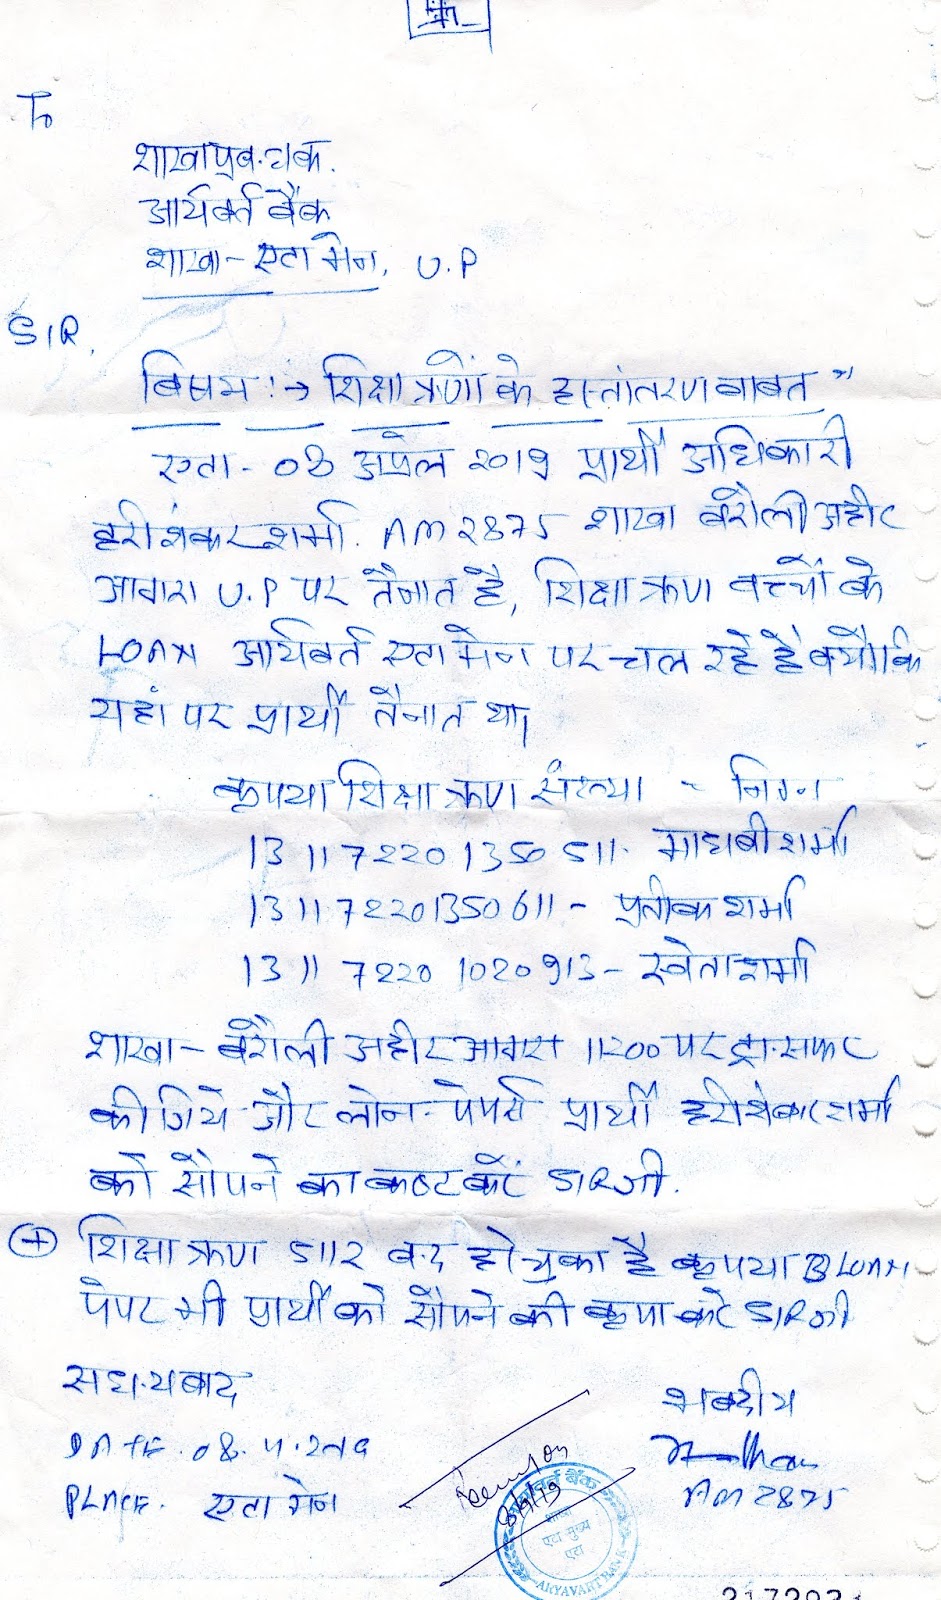 To
शाखाप्रबन्धक.
आर्यवर्त बैंक
शाखा - एटा मेन, U.P
SIR,
विषय :→ शिक्षा ऋणों के हस्तांतरण बाबत "
एटा - 08 अप्रेल 2019 प्रार्थी अधिकारी
हरीशंकर शर्मा. AM 2875 शाखा बरौली अहीर
आगरा U.P पर तैनात है, शिक्षा ऋण बच्चों के
LOAN आर्यवर्त एटा मेन पर चल रहे है क्योंकि
यहां पर प्रार्थी तैनात था,
कृपया शिक्षा ऋण संख्या - निम्न
13 11 7220 1350 511. माधवी शर्मा
13 11 7220 1350 611 - प्रतीक शर्मा
13 11 7220 1020 913 - स्वेता शर्मा
शाखा - बरौली अहीर आगरा 11200 पर ट्रान्सफर
कीजिये और लोन पेपर्स प्रार्थी हरीशंकर शर्मा
को सौपने का कष्ट करें SIR जी.
+ शिक्षा ऋण 5112 बन्द हो चुका है कृपया LOAN
पेपर भी प्रार्थी को सौपने की कृपा करें SIR जी
सधन्यबाद
भवदीय
DATE. 08.4.2019
AM 2875
PLACE. एटा मेन
8/4/19
शाखा
एटा मुख्य
एटा
ARYAVART BANK